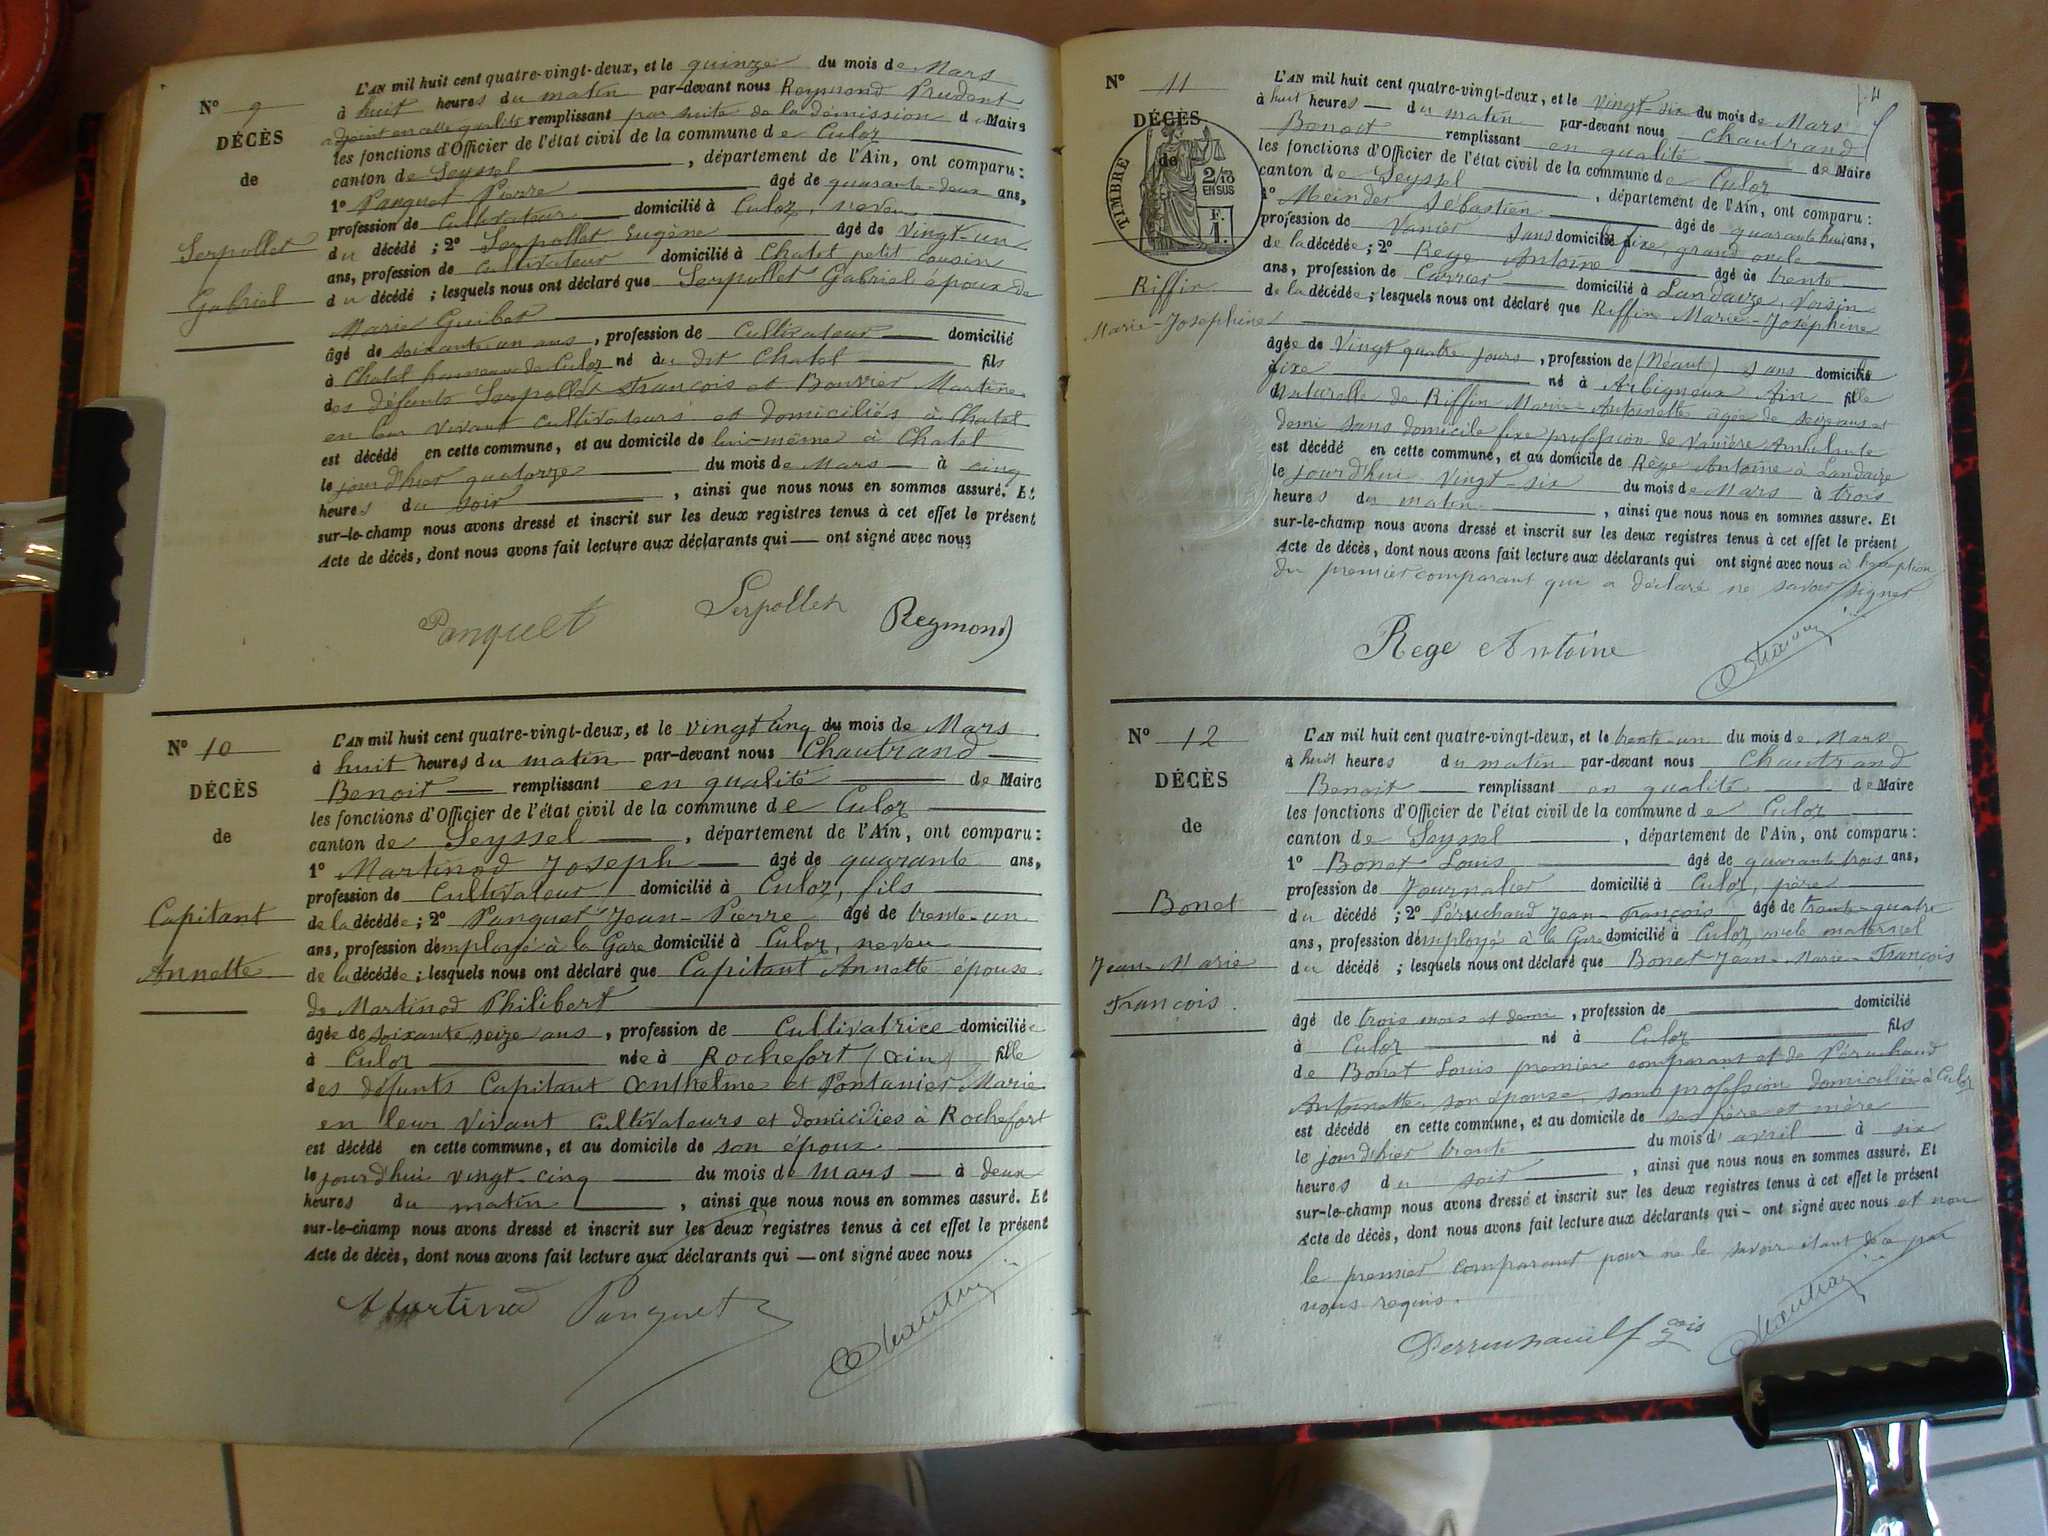 N° 9
DÉCÈS
de
Serpollet
Gabriel
L'AN mil huit cent quatre-vingt-deux, et le quinze du mois de Mars
à huit heures du matin par-devant nous Reymond Prudent
adjoint en cette qualité remplissant par suite de la démission du Maire
les fonctions d'Officier de l'état civil de la commune de Culoz
canton de Seyssel, département de l'Ain, ont comparu :
1° Panquet Pierre âgé de quarante-deux ans,
profession de Cultivateur domicilié à Culoz, neveu
du décédé ; 2° Serpollet Eugène âgé de vingt-un
ans, profession de Cultivateur domicilié à Chatel petit cousin
du décédé ; lesquels nous ont déclaré que Serpollet Gabriel époux de
Marie Guibet
âgé de soixante-un ans, profession de Cultivateur domicilié
à Chatel hameau de Culoz né au dit Chatel fils
des défunts Serpollet François et Bouvier Martine
en leur vivant cultivateurs et domiciliés à Chatel
est décédé en cette commune, et au domicile de lui-même à Chatel
le jour d'hier quatorze du mois de Mars à cinq
heures du soir, ainsi que nous nous en sommes assuré. Et
sur-le-champ nous avons dressé et inscrit sur les deux registres tenus à cet effet le présent
Acte de décès, dont nous avons fait lecture aux déclarants qui — ont signé avec nous
Panquet Serpollet Reymond
N° 10
DÉCÈS
de
Capitant
Annette
L'AN mil huit cent quatre-vingt-deux, et le vingt cinq du mois de Mars
à huit heures du matin par-devant nous Chautrand
Benoit remplissant en qualité de Maire
les fonctions d'Officier de l'état civil de la commune de Culoz
canton de Seyssel, département de l'Ain, ont comparu :
1° Martinod Joseph âgé de quarante ans,
profession de Cultivateur domicilié à Culoz, fils
de la décédée ; 2° Panquet Jean-Pierre âgé de trente-un
ans, profession d'employé à la Gare domicilié à Culoz, neveu
de la décédée ; lesquels nous ont déclaré que Capitant Annette épouse
de Martinod Philibert
âgée de soixante seize ans, profession de Cultivatrice domiciliée
à Culoz née à Rochefort (Ain) fille
des défunts Capitant Anthelme et Pontanier Marie
en leur vivant Cultivateurs et domiciliés à Rochefort
est décédé en cette commune, et au domicile de son époux
le jour d'hui vingt-cinq du mois de Mars à deux
heures du matin, ainsi que nous nous en sommes assuré. Et
sur-le-champ nous avons dressé et inscrit sur les deux registres tenus à cet effet le présent
Acte de décès, dont nous avons fait lecture aux déclarants qui — ont signé avec nous
Martinod Panquet Chautrand
N° 11
DÉCÈS
de
TIMBRE
2/10
EN SUS
F.
1.
Riffin
Marie-Joséphine
L'AN mil huit cent quatre-vingt-deux, et le vingt six du mois de Mars
à huit heures du matin par-devant nous Chautrand
Benoit remplissant en qualité de Maire
les fonctions d'Officier de l'état civil de la commune de Culoz
canton de Seyssel, département de l'Ain, ont comparu :
1° Meinder Sébastien âgé de quarante huit ans,
profession de Vanier sans domicile fixe, grand oncle
de la décédée ; 2° Rege Antoine âgé de trente
ans, profession de Carrier domicilié à Landaize, voisin
de la décédée ; lesquels nous ont déclaré que Riffin Marie-Joséphine
âgée de Vingt quatre jours, profession de (Néant) sans domicile
fixe né à Arbigneux Ain fille
naturelle de Riffin Marie-Antoinette âgée de seize ans et
demi sans domicile fixe profession de Vanière Ambulante
est décédé en cette commune, et au domicile de Rège Antoine à Landaize
le jour d'hui vingt-six du mois de Mars à trois
heures du matin, ainsi que nous nous en sommes assuré. Et
sur-le-champ nous avons dressé et inscrit sur les deux registres tenus à cet effet le présent
Acte de décès, dont nous avons fait lecture aux déclarants qui ont signé avec nous à l'exception
du premier comparant qui a déclaré ne savoir signer
Rege Antoine Chautrand
N° 12
DÉCÈS
de
Bonet
Jean-Marie
François.
L'AN mil huit cent quatre-vingt-deux, et le trente-un du mois de Mars
à huit heures du matin par-devant nous Chautrand
Benoit remplissant en qualité de Maire
les fonctions d'Officier de l'état civil de la commune de Culoz
canton de Seyssel, département de l'Ain, ont comparu :
1° Bonet Louis âgé de quarante trois ans,
profession de Journalier domicilié à Culoz, père
du décédé ; 2° Péruchaud Jean-François âgé de trente-quatre
ans, profession d'employé à la Gare domicilié à Culoz, oncle maternel
du décédé ; lesquels nous ont déclaré que Bonet Jean-Marie-François
âgé de trois mois et demi, profession de domicilié
à Culoz né à Culoz fils
de Bonet Louis premier comparant et de Péruchaud
Antoinette, son épouse, sans profession domiciliée à Culoz
est décédé en cette commune, et au domicile de ses père et mère
le jour d'hier trente du mois d'avril à six
heures du soir, ainsi que nous nous en sommes assuré. Et
sur-le-champ nous avons dressé et inscrit sur les deux registres tenus à cet effet le présent
Acte de décès, dont nous avons fait lecture aux déclarants qui — ont signé avec nous et non
le premier comparant pour ne le savoir étant de ce par
nous requis.
Chautrand